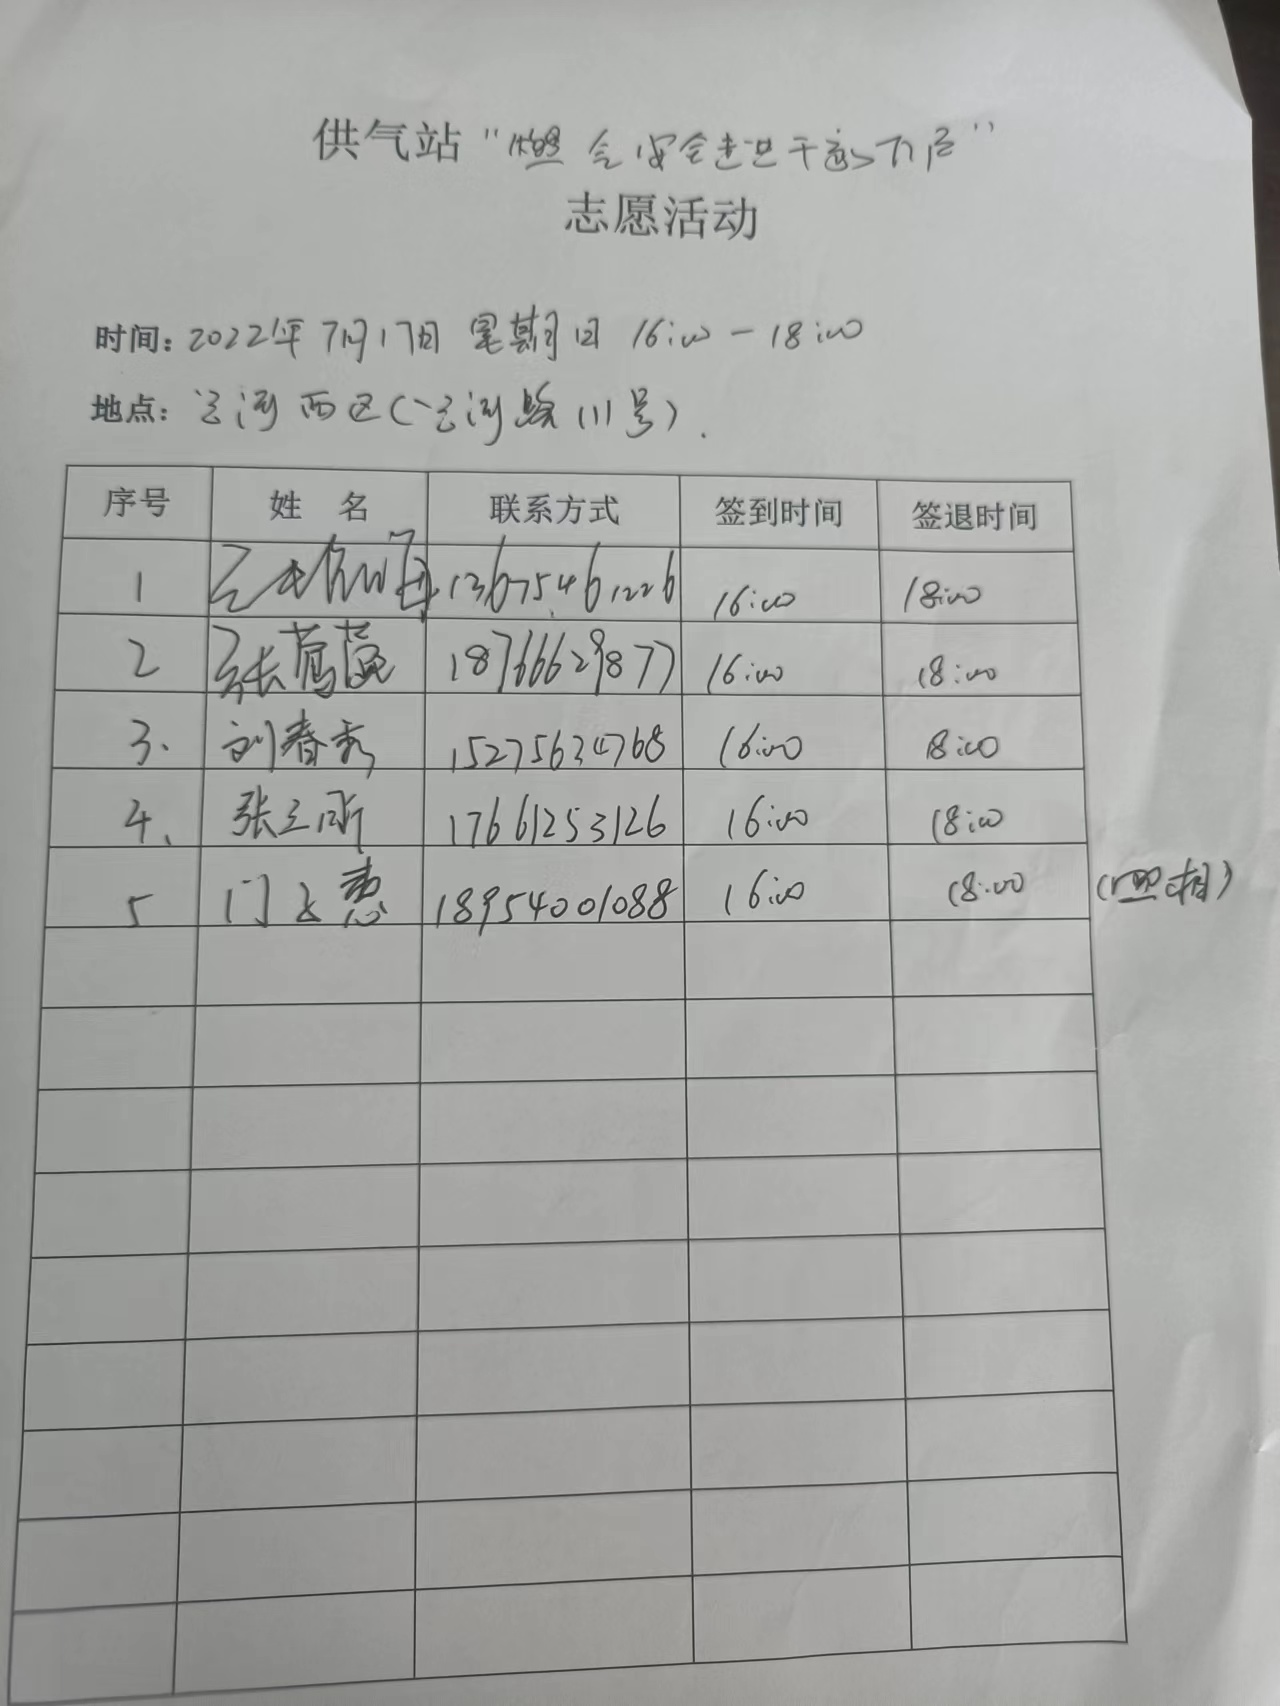 供气站“燃气安全走进千家万户”
志愿活动
时间：2022年7月17日 星期日 16:00－18:00
地点：运河西区（运河路111号）.
序号 姓 名 联系方式 签到时间 签退时间
1 13675461226 16:00 18:00
2 张莺莺 18766629877 16:00 18:00
3. 刘春秀 15275634768 16:00 18:00
4. 张立昕 17661253126 16:00 18:00
5 门文惠 18954001088 16:00 18:00 （照相）